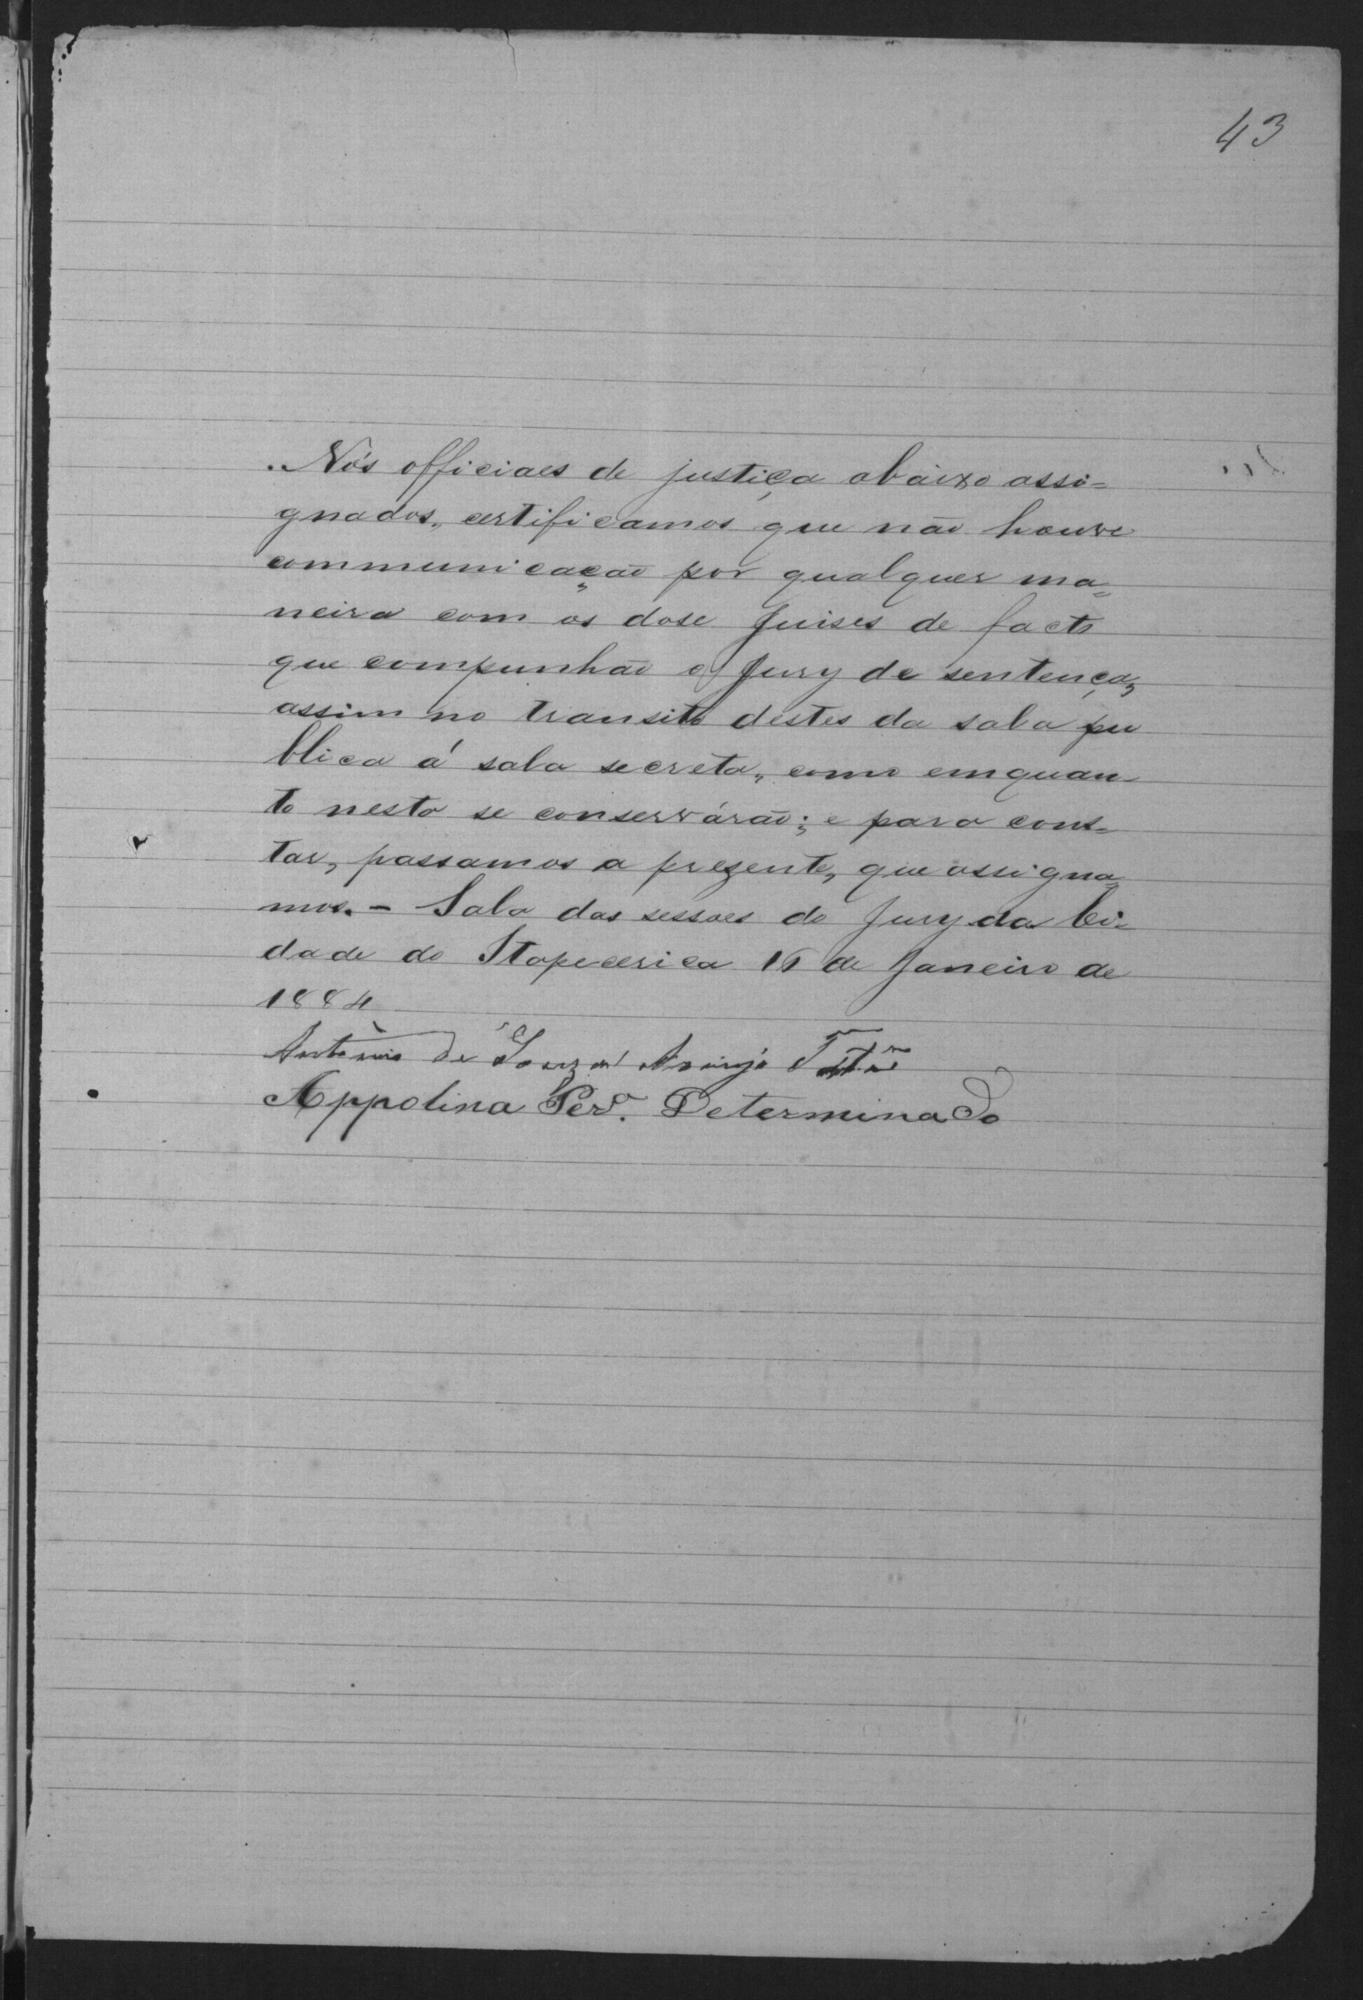 43
Nós officiaes de justiça abàixo assi=
gnados, certificamos que não houve
communicação por qualquer ma=
neira com os dose Juises de facto
que compunhão o Jury de sentença,
assim no transito destes da sala pu
blica á sala secreta, como emquan
to nesta se conservárão; e para cons-
tar, passamos a prezente, que assigna
mos. - Sala das sessões do Jury da Ci-
dade de Itapecerica 16 de Janeiro de
1884
Antonio de Souza Araujo
Appolina Per.ª Determinado